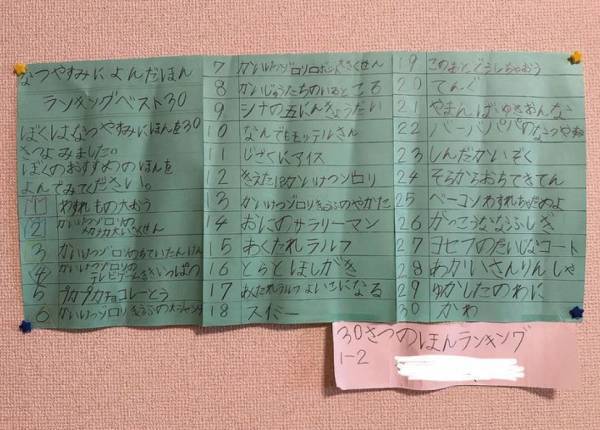 なつやすみによんだほん
ランキングベスト30
ぼくはなつやすみにほんを30
さつよみました。
ぼくのおすすめのほんを
よんでみてください。
1 わすれもの大おう
2 かいけつゾロリの
大さくせん
3 かいけつゾロリ
4 かいけつゾロリの
テレビゲームききいっぱつ
5 プカプカチョコレーとう
6 かいけつゾロリ
7 かいけつゾロリ さくせん
8 かいじゅうたちのいるところ
9 シナの五にんきょうだい
10 なんでもモッテルさん
11 じごくにアイス
12 きえた!?かいけつゾロリ
13 かいけつゾロリきょうふのやかた
14 おにのサラリーマン
15 あくたれラルフ
16 とらとほしがき
17 あくたれラルフよいこになる
18 スイミー
19 このあとどうしちゃおう
20 てんぐ
21 やまんば ゆきおんな
22 バーバパパのなつやすみ
23 しんだかいぞく
24 そらからおちてきてん
25 ベーコンわすれちゃだめよ
26 がっこうななふしぎ
27 ヨセフのだいじなコート
28 あかいさんりんしゃ
29 ゆかしたのわに
30 かわ
30さつのほんランキング
1-2